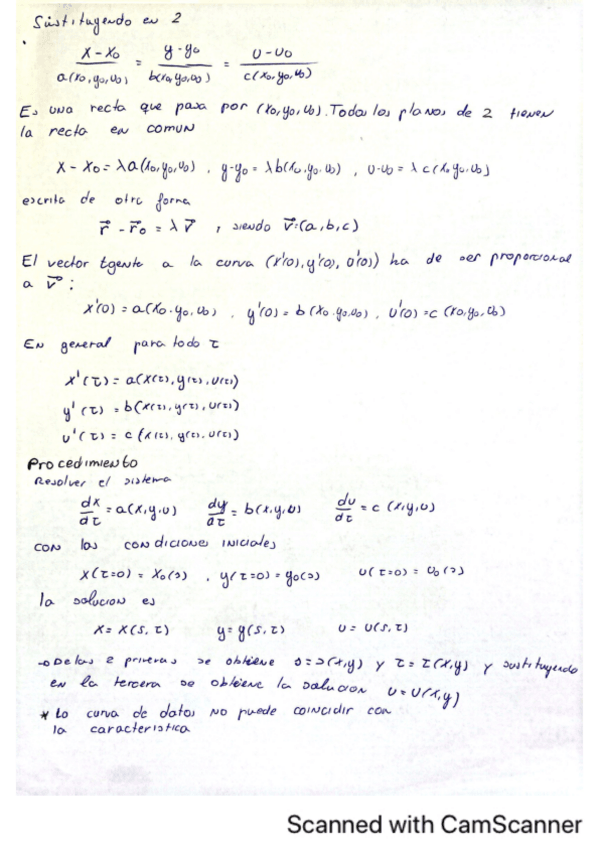 Sustituyendo en 2
x-x₀ / a(x₀,y₀,u₀) = y-y₀ / b(x₀,y₀,u₀) = u-u₀ / c(x₀,y₀,u₀)
Es una recta que pasa por (x₀,y₀,u₀). Todos los planos de 2 tienen
la recta en comun
x-x₀ = λa(x₀,y₀,u₀) , y-y₀ = λb(x₀,y₀,u₀) , u-u₀ = λc(x₀,y₀,u₀)
escrita de otra forma
r⃗ - r⃗₀ = λ v⃗ , siendo v⃗=(a,b,c)
El vector tgente a la curva (x'(0), y'(0), u'(0)) ha de ser proporcional
a v⃗ :
x'(0) = a(x₀,y₀,u₀) , y'(0) = b(x₀,y₀,u₀) , u'(0) = c(x₀,y₀,u₀)
En general para todo τ
x'(τ) = a(x(τ), y(τ), u(τ))
y'(τ) = b(x(τ), y(τ), u(τ))
u'(τ) = c(x(τ), y(τ), u(τ))
Procedimiento
Resolver el sistema
dx/dτ = a(x,y,u) dy/dτ = b(x,y,u) du/dτ = c(x,y,u)
con las condiciones iniciales
x(τ=0) = x₀(s) , y(τ=0) = y₀(s) u(τ=0) = u₀(s)
la solucion es
x = x(s,τ) y = y(s,τ) u = u(s,τ)
→ De las 2 primeras se obtiene s = s(x,y) y τ = τ(x,y) y sustituyendo
en la tercera se obtiene la solucion u = u(x,y)
* La curva de datos no puede coincidir con
la caracteristica
Scanned with CamScanner